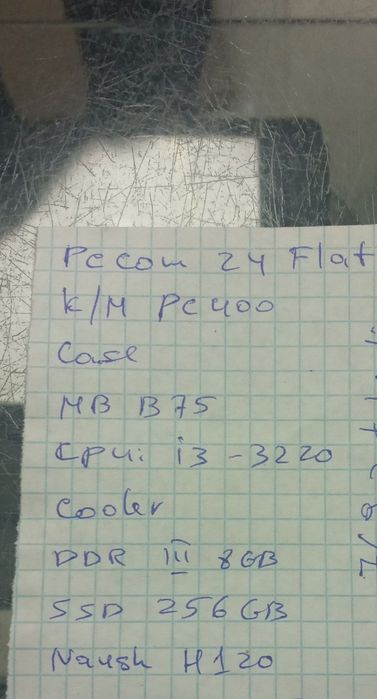 Pccom 24 Flat
K/M PC400
Case
MB B75
CPU: i3-3220
Cooler
DDR III 8GB
SSD 256GB
H120